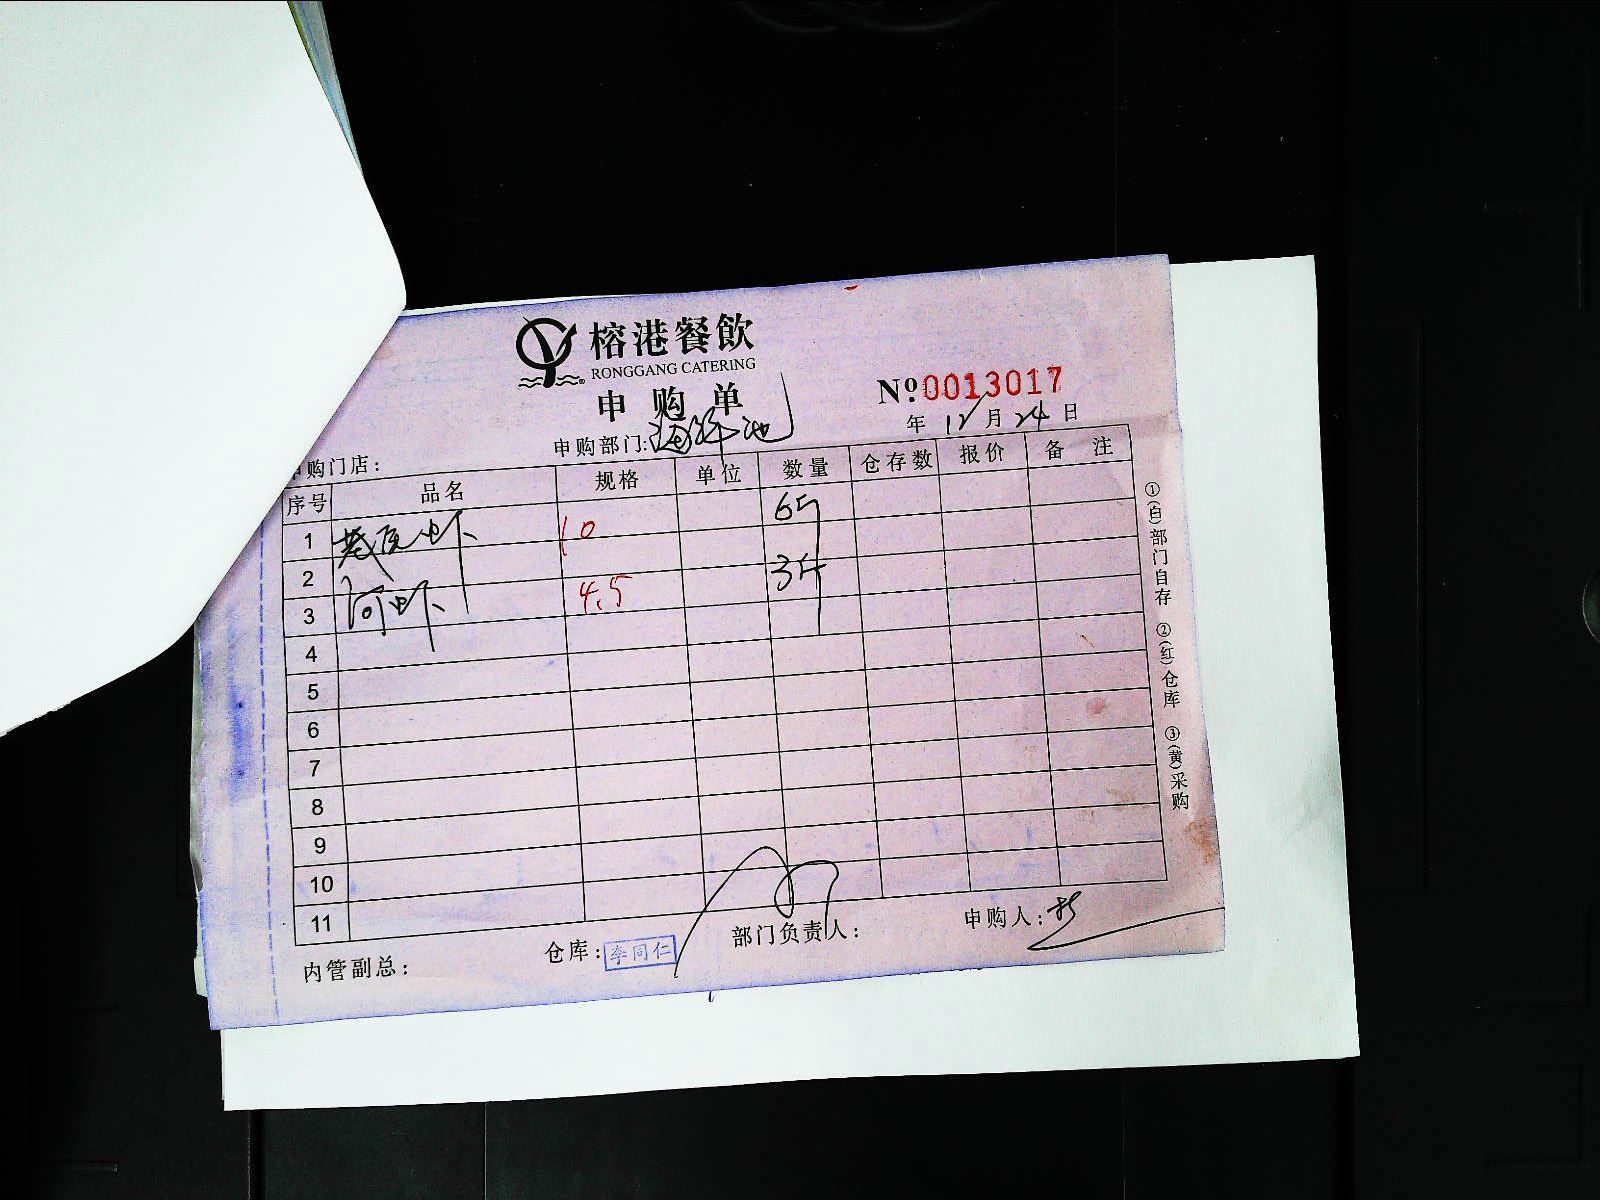 榕港餐飲
RONGGANG CATERING
申购单
№:0013017
年 12月24日
申购部门:海鲜池
购门店:
序号 品名 规格 单位 数量 仓存数 报价 备注
1 基尾虾 10 6斤
2
3 河虾 4.5 3斤
4
5
6
7
8
9
10
11
内管副总: 仓库:李同仁 部门负责人: 申购人:
①(白)部门自存 ②(红)仓库 ③(黄)采购